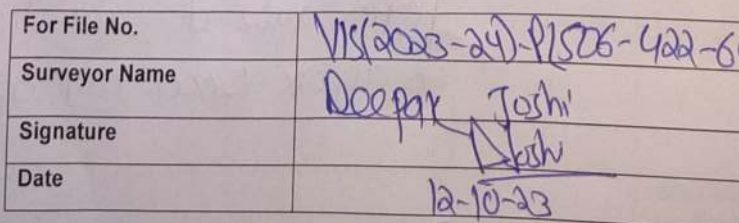 For File No. VIS(2023-24)-PL506-422-6
Surveyor Name Deepak Joshi
Signature DJoshi
Date 12-10-23